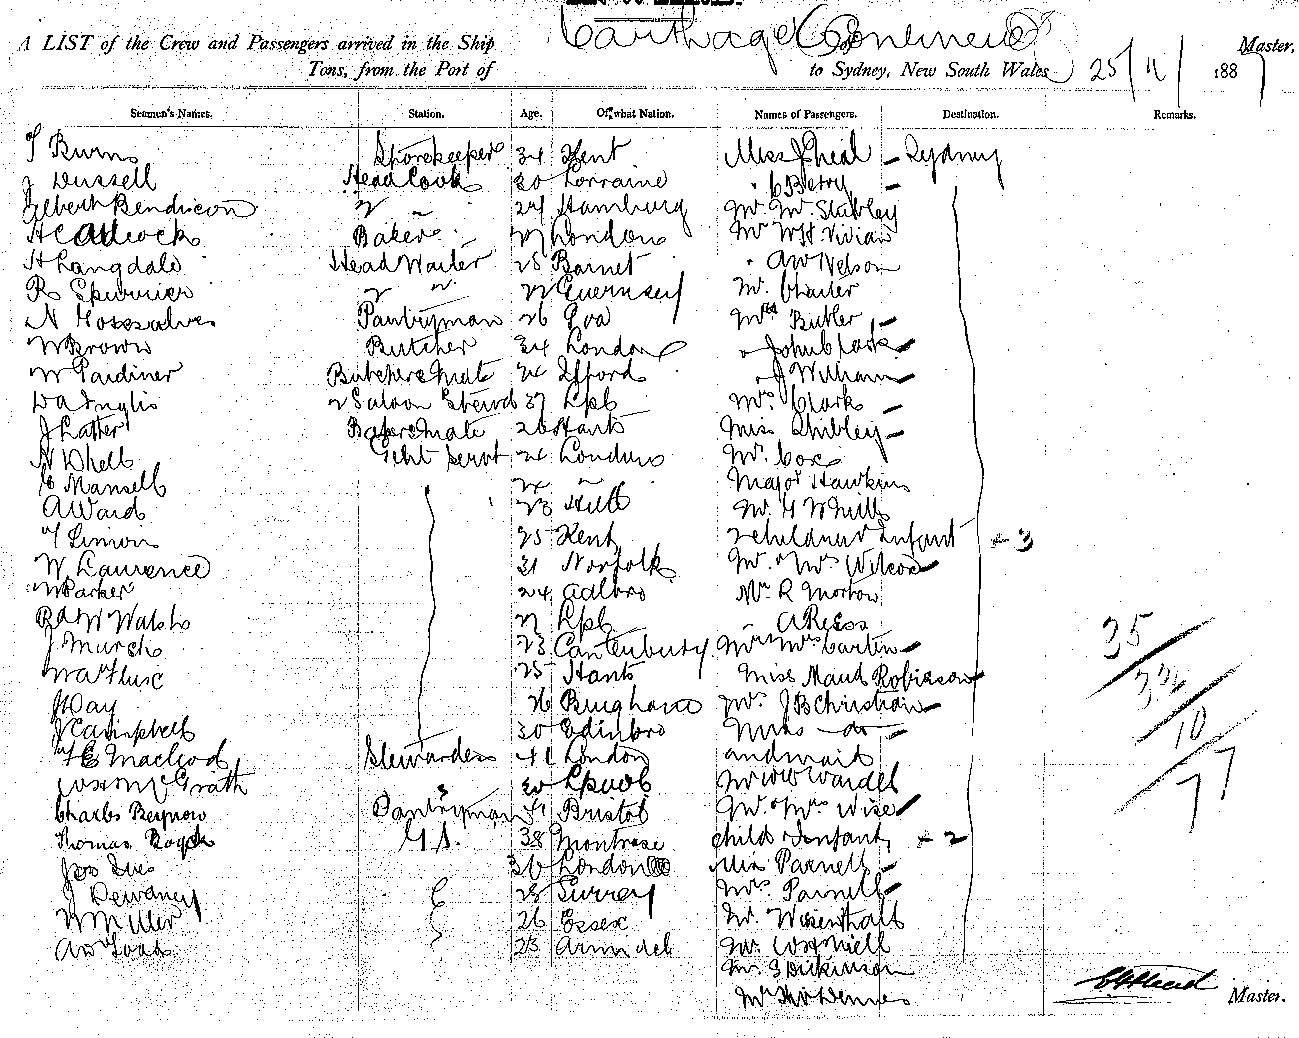 Carthage Continued
A LIST of the Crew and Passengers arrived in the Ship of Master,
Tons, from the Port of to Sydney, New South Wales 25/11/1887
Seamen's Names. Station. Age. Of what Nation. Names of Passengers. Destination. Remarks.
T Burns Storekeeper 34 Kent Miss J Sheal - Sydney
J Dussell Head Cook 30 Lorraine " C Betry -
2 ~ 24 Hamburg Mr. M. Stubley
Baker 27 London Mr W H. Vivian
H Langdale Head Waiter 25 Barnet " A W Nelson
R Spurrier 2 " 27 Guernsey Mr.
N Gosesalves Pantryman 26 Goa Mrs Butler -
W Brown Butcher 34 London " John Clark -
W Gardiner Butchers Mate 24 Ilford " J William -
D A Inglis 2 Saloon Stewd 37 Lpl Mrs Clark -
J Latter Bakers Mate 26 Hants Miss Shibley -
Genl Servt 24 London Mr. Cox
E Mansell 24 ~ Major Hawkins
A Ward 23 Hull Mr. G W Mills
25 Kent 2 children & Infant + 3
W. Laurence 21 Norfolk Mr. & Mrs Wilcox
W Parker 24 Mr R Morton
R A W Walsh 27 Lpl " A Reess
J Marsh 23 Canterbury Mr & Mrs Carter -
25 Hants Miss Maud Robinson
J Day 26 Bingham Mr. J B Christian -
J Campbell 30 Edinbro Miss - do -
F E Macleod Stewardess 41 London and maid
McGrath 30 Lpool Mr W W Wardell
Charles Beynow 3 Pantryman 41 Bristol Mr. & Mrs Wise
Thomas Boyck G. S. 38 Montrose child & Infant + 2
Jos Ives 36 London Miss Parnell -
J Dewaney 28 Surrey Mrs Parnell -
W Miller 26 Essex Mr. Wisenthall
A W 23 Arundel Mr.
Mr. S Dickinson
Mr Dennes
35
34
10
77
Master.